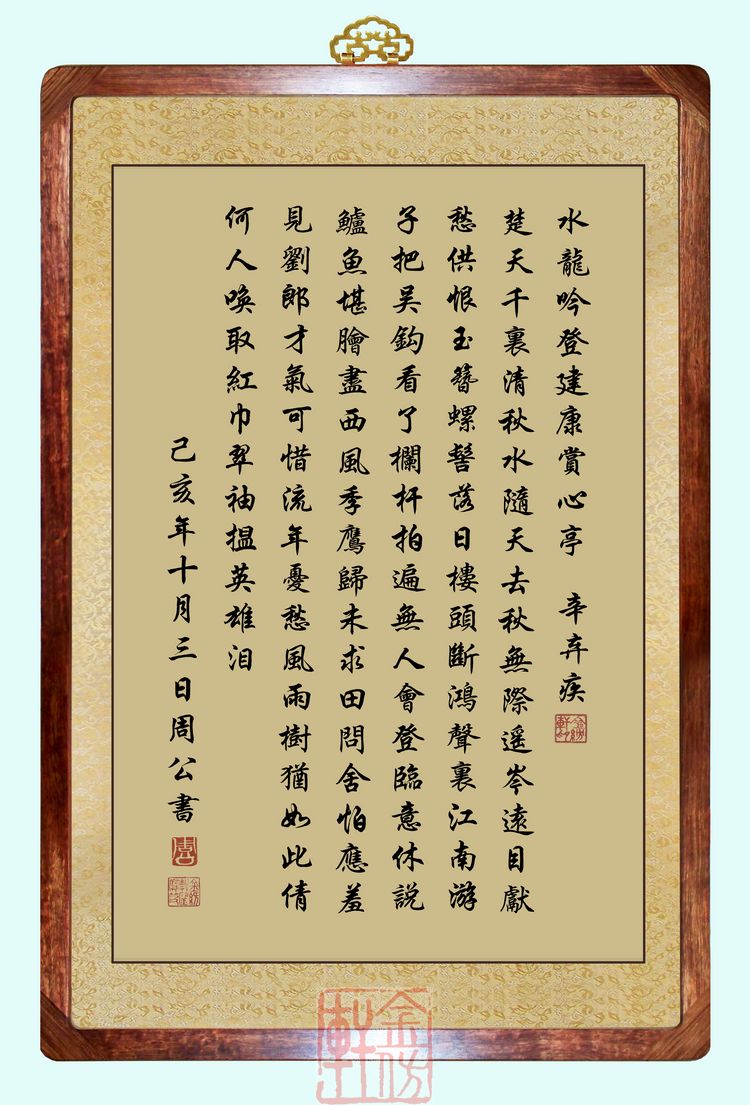 水龍吟登建康賞心亭 辛弃疾
楚天千裏清秋水隨天去秋無際遥岑遠目獻
愁供恨玉簪螺髻落日樓頭斷鴻聲裏江南游
子把吴鈎看了欄杆拍遍無人會登臨意休説
鱸魚堪膾盡西風季鷹歸未求田問舍怕應羞
見劉郎才氣可惜流年憂愁風雨樹猶如此倩
何人唤取紅巾翠袖揾英雄泪
己亥年十月三日周公書